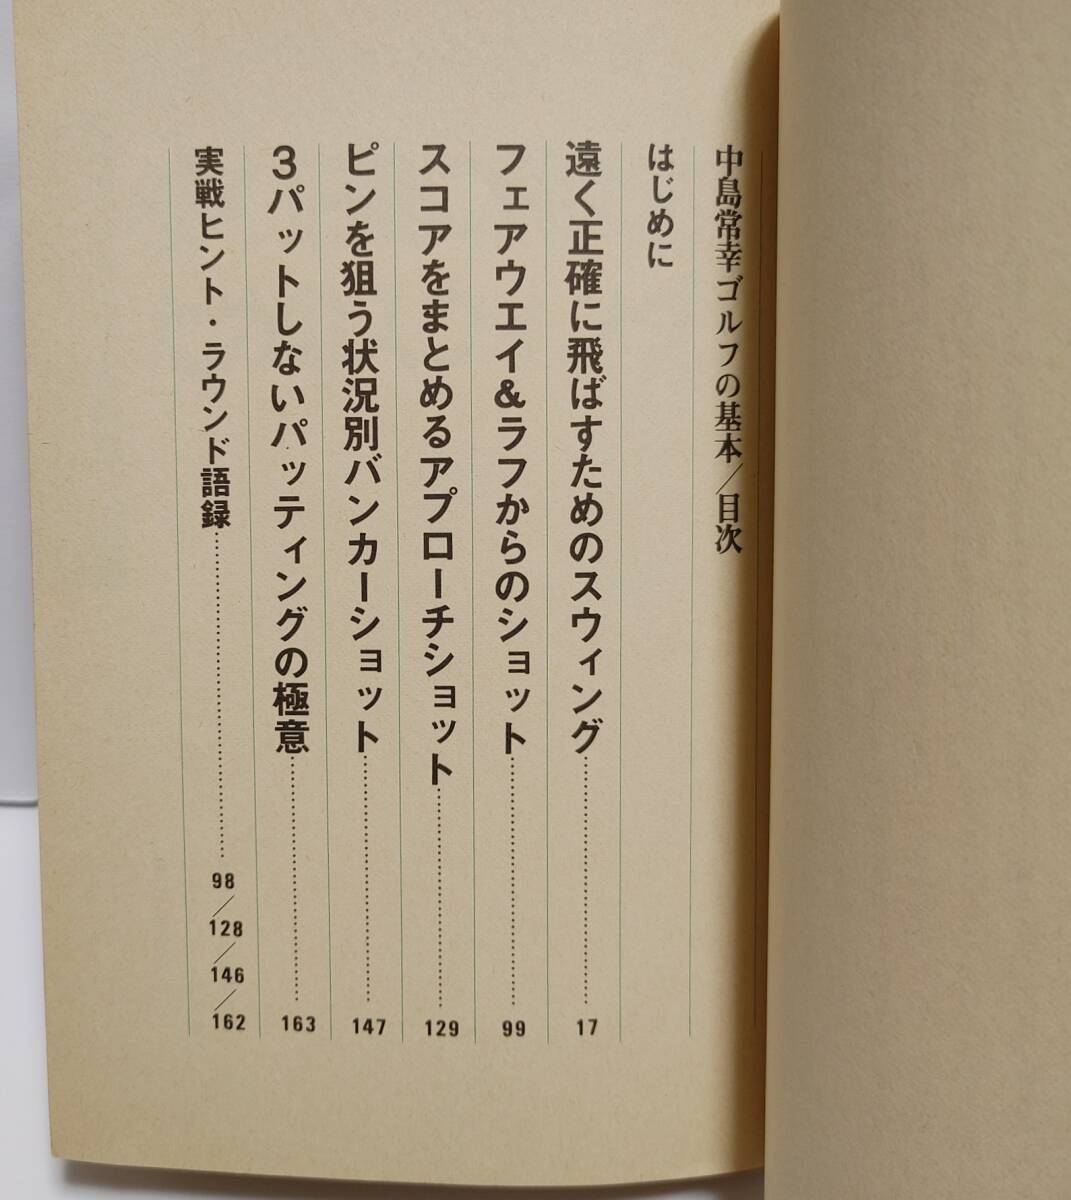 中島常幸ゴルフの基本／目次
はじめに
遠く正確に飛ばすためのスウィング……17
フェアウエイ&ラフからのショット……99
スコアをまとめるアプローチショット……129
ピンを狙う状況別バンカーショット……147
3パットしないパッティングの極意……163
実戦ヒント・ラウンド語録……98／128／146／162